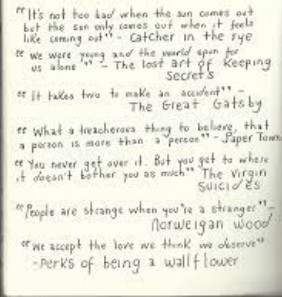 "It's not too bad when the sun comes out
but the sun only comes out when it feels
like coming out" - Catcher in the rye
"We were young and the world spun for
us alone" - The lost art of keeping
Secrets
"It takes two to make an accident" -
The Great Gatsby
"What a treacherous thing to believe, that
a person is more than a person" - Paper Towns
"You never get over it. But you get to where
it doesn't bother you as much" The Virgin
Suicides
"People are strange when you're a stranger" -
Norweigan wood
"We accept the love we think we deserve"
-Perks of being a wallflower